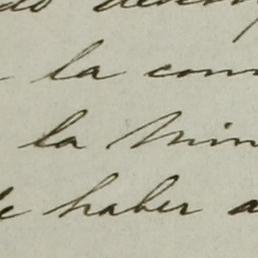 la com
la Min
de haber a